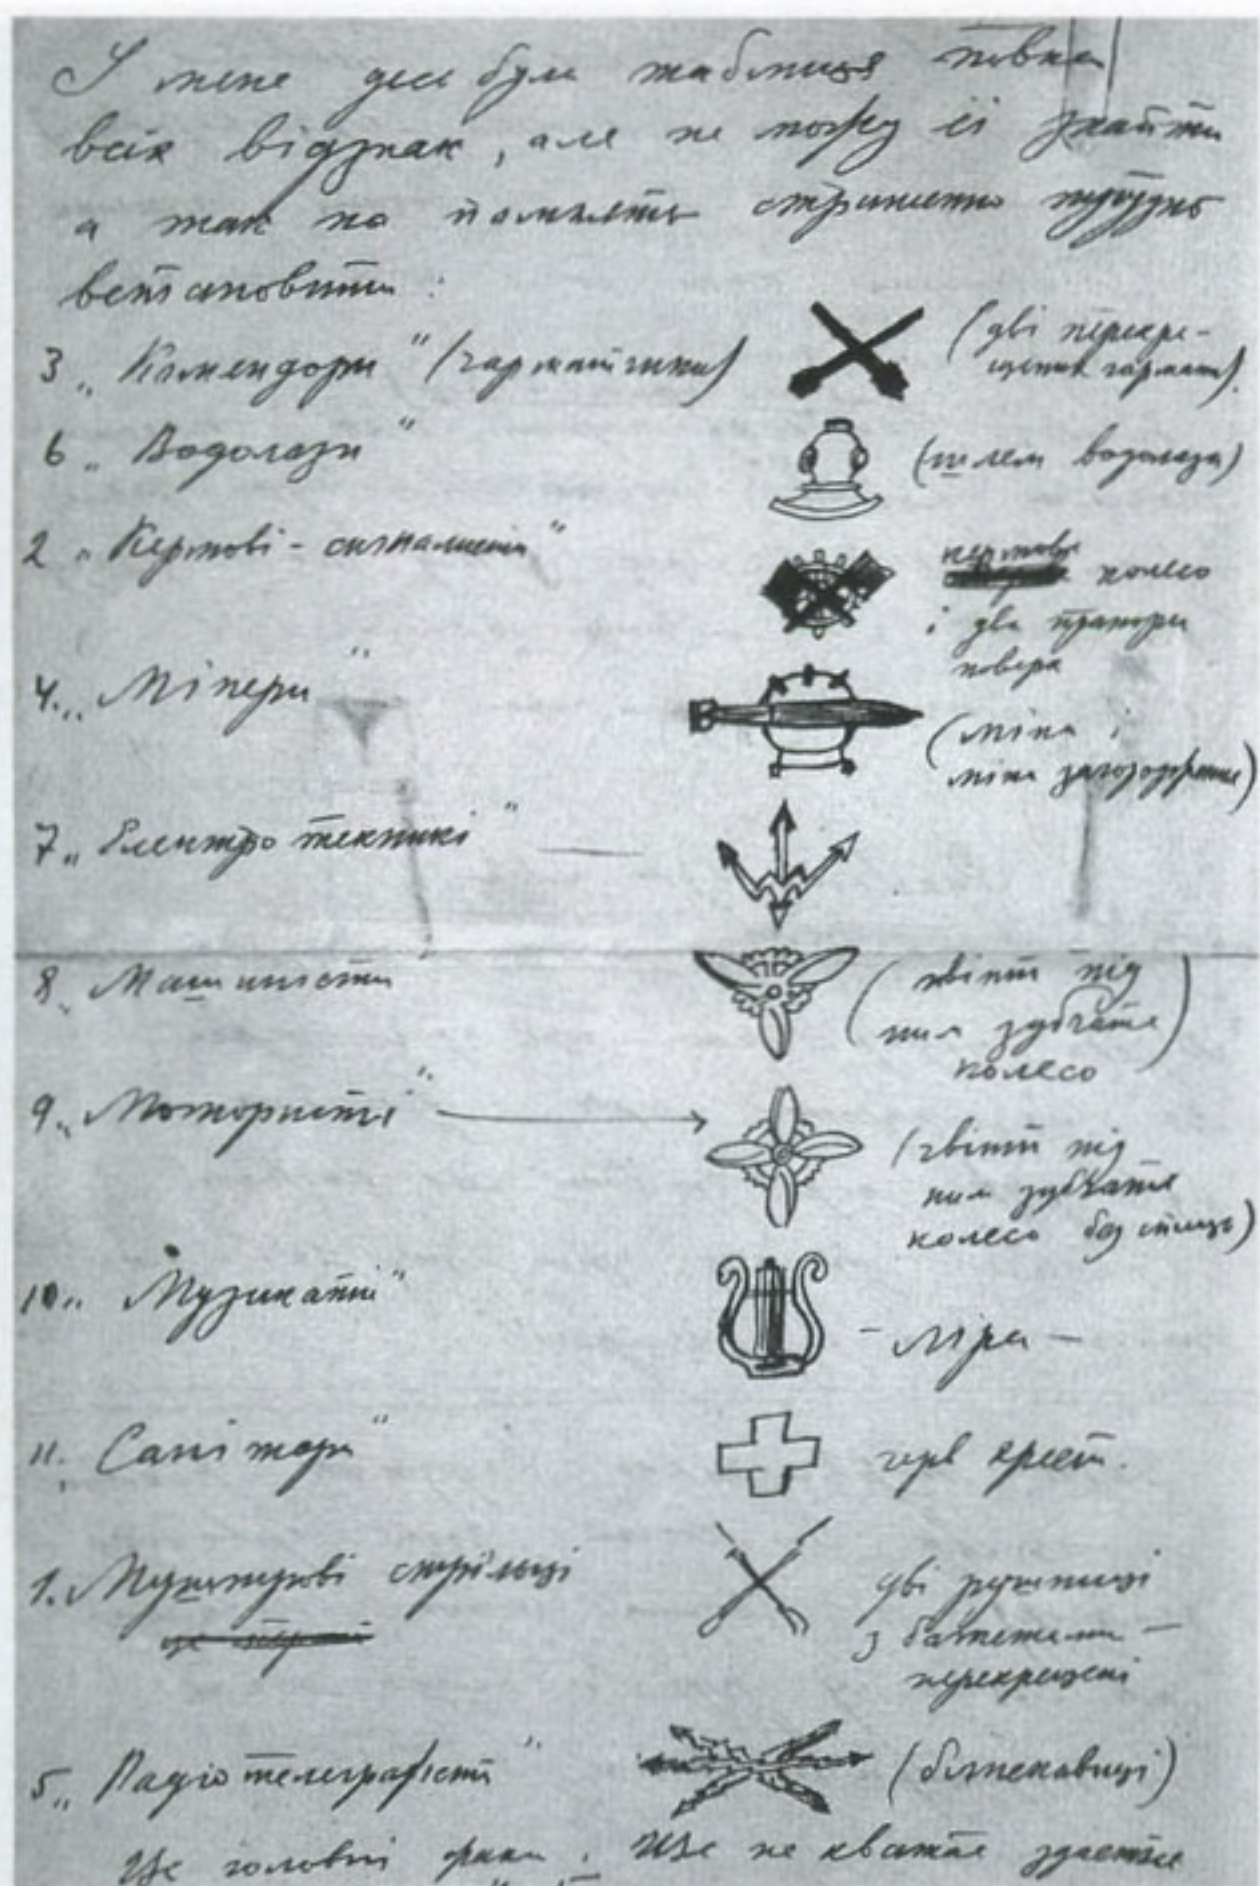 У мене десь була таблиця повна
всіх відзнак, але не можу її знайти
а так на память страшенно трудно
встановити:
3 „Комендори" (гарматчики) (дві перекре-
щені гармати).
6 „Водолази" (шелем водолаза)
2 „Кермові - сигналисти" кермове колесо
і два прапори
поверх
4. „Мінери" (міна і
міна загородження)
7 „Електротехнікі"
8 „Машиністи (гвінт під
ним зубчате)
колесо
9. „Мотористі" (гвінт під
ним зубчате
колесо без спиць)
10 „Музиканти" - ліра -
11. „Санітари" черв. крест.
1. Мушкетерові стрільці дві рушниці
з багнетами -
перекрещені
5 „Радіотелеграфісти" (блискавиці)
Це головні фахи. Ще не хватає здається